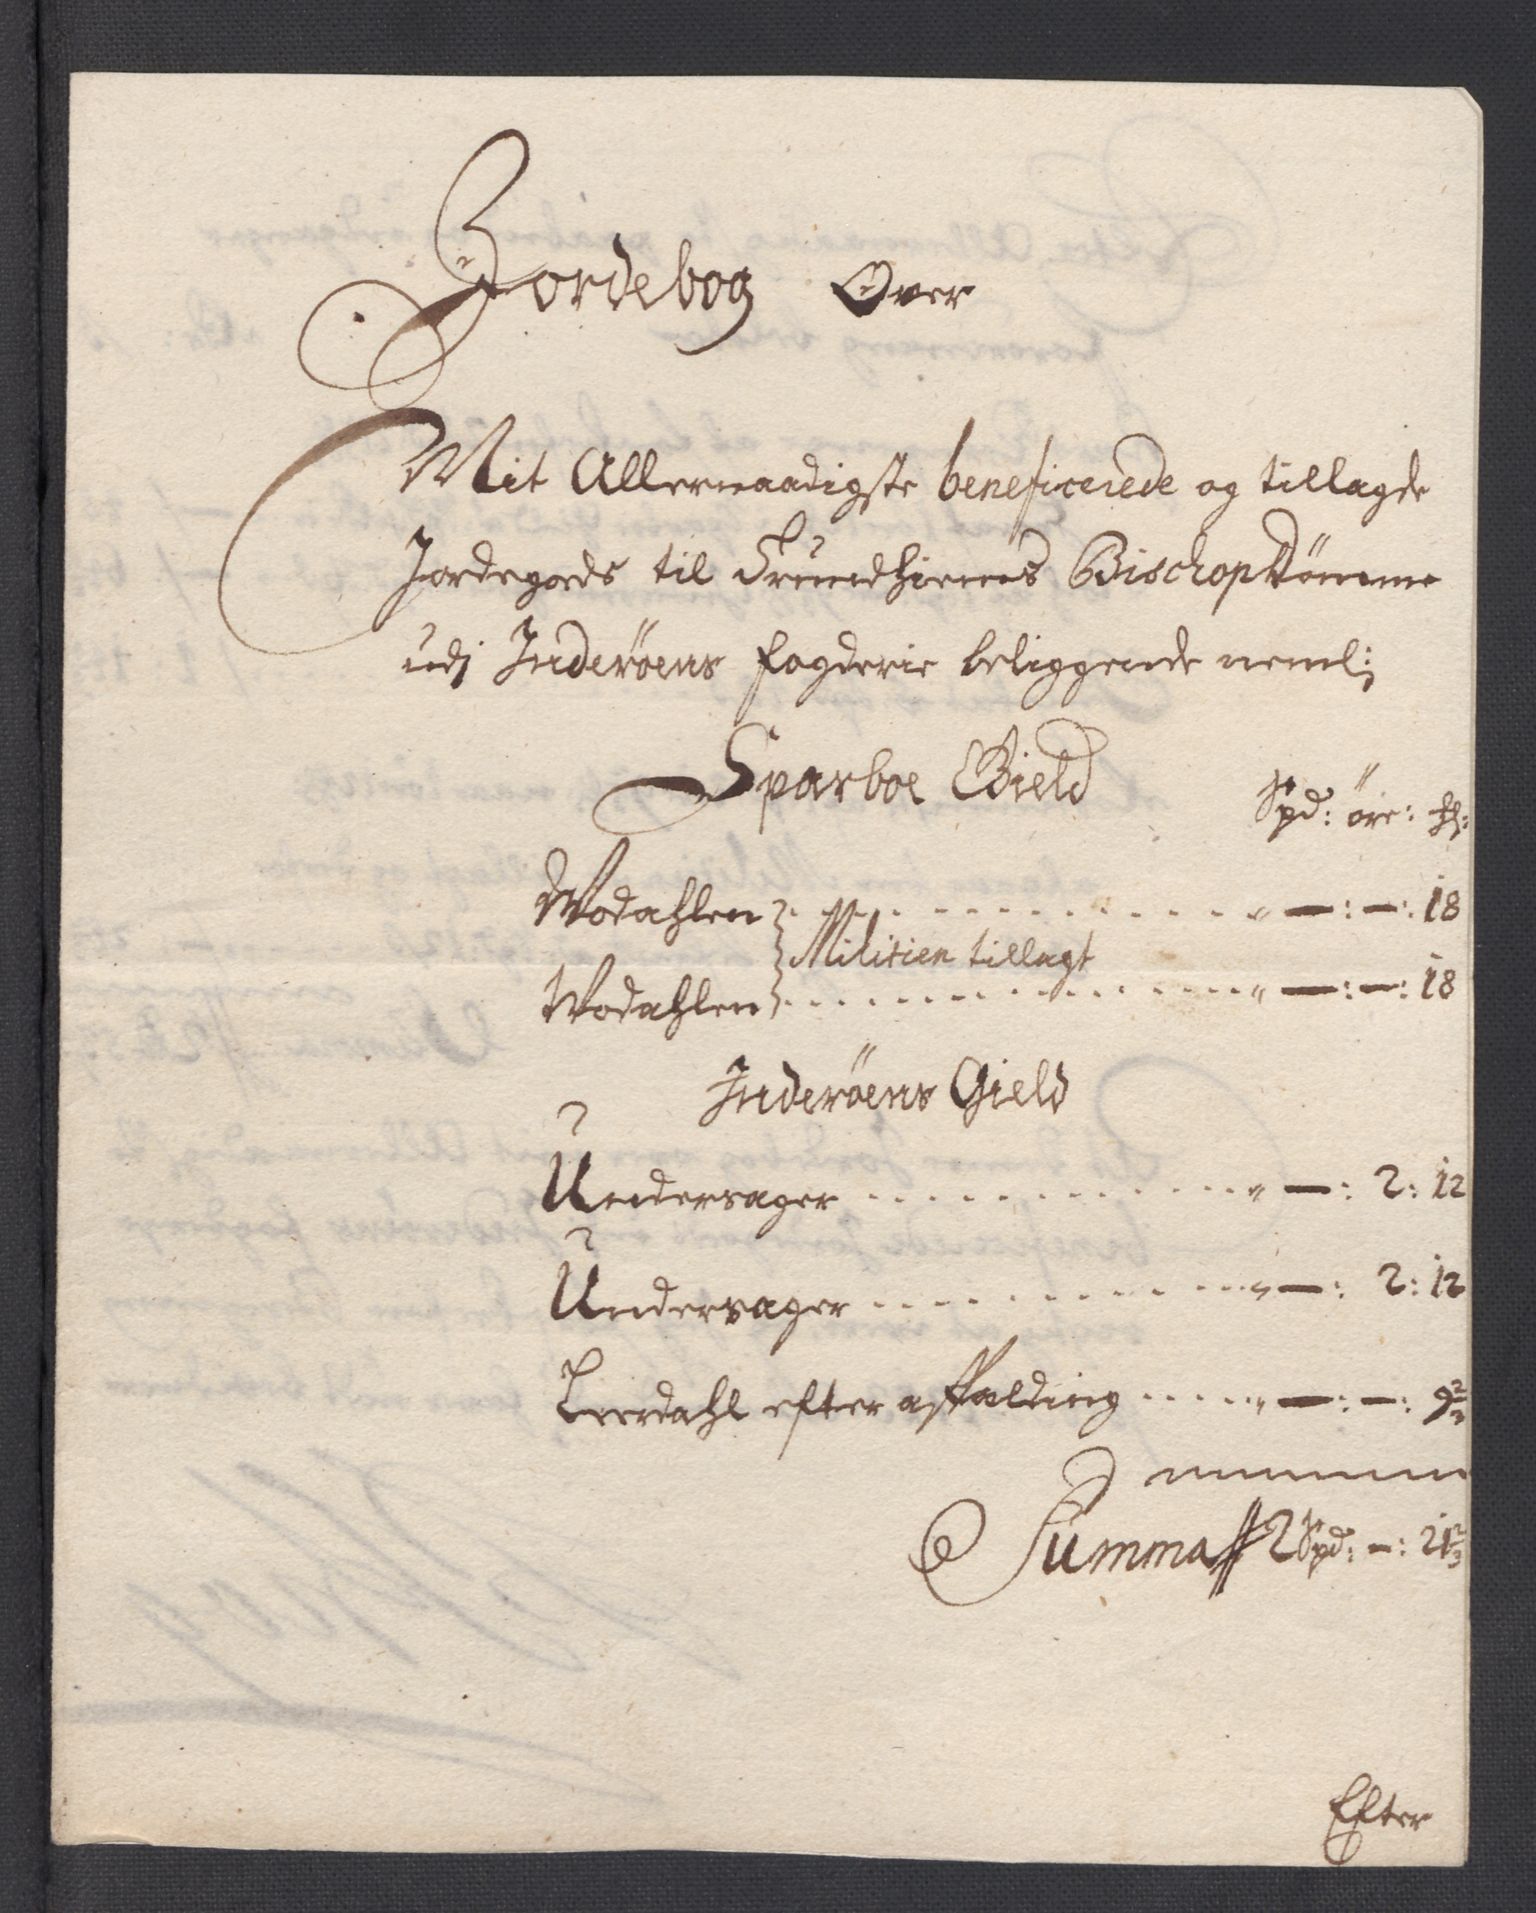 Jordebog Over
Mit Allernaadigste beneficerede og tillagde
Jordegods til Trundhiems Bischopdömme
udj Inderöens fogderie beliggende neml:
Sparboe Gield
Spd: öre: ß:
Wodahlen - - - - " —: —: 18
Militien tillagt
Wodahlen - - - - " —: —: 18
Inderöens Gield
Undersager - - - - " —: 2: 12
Undersager - - - - " —: 2: 12
Leerdahl efter affælding - - - - " —: —: 9 2/3
Summa // 2 Spd: —: 21 2/3
Efter